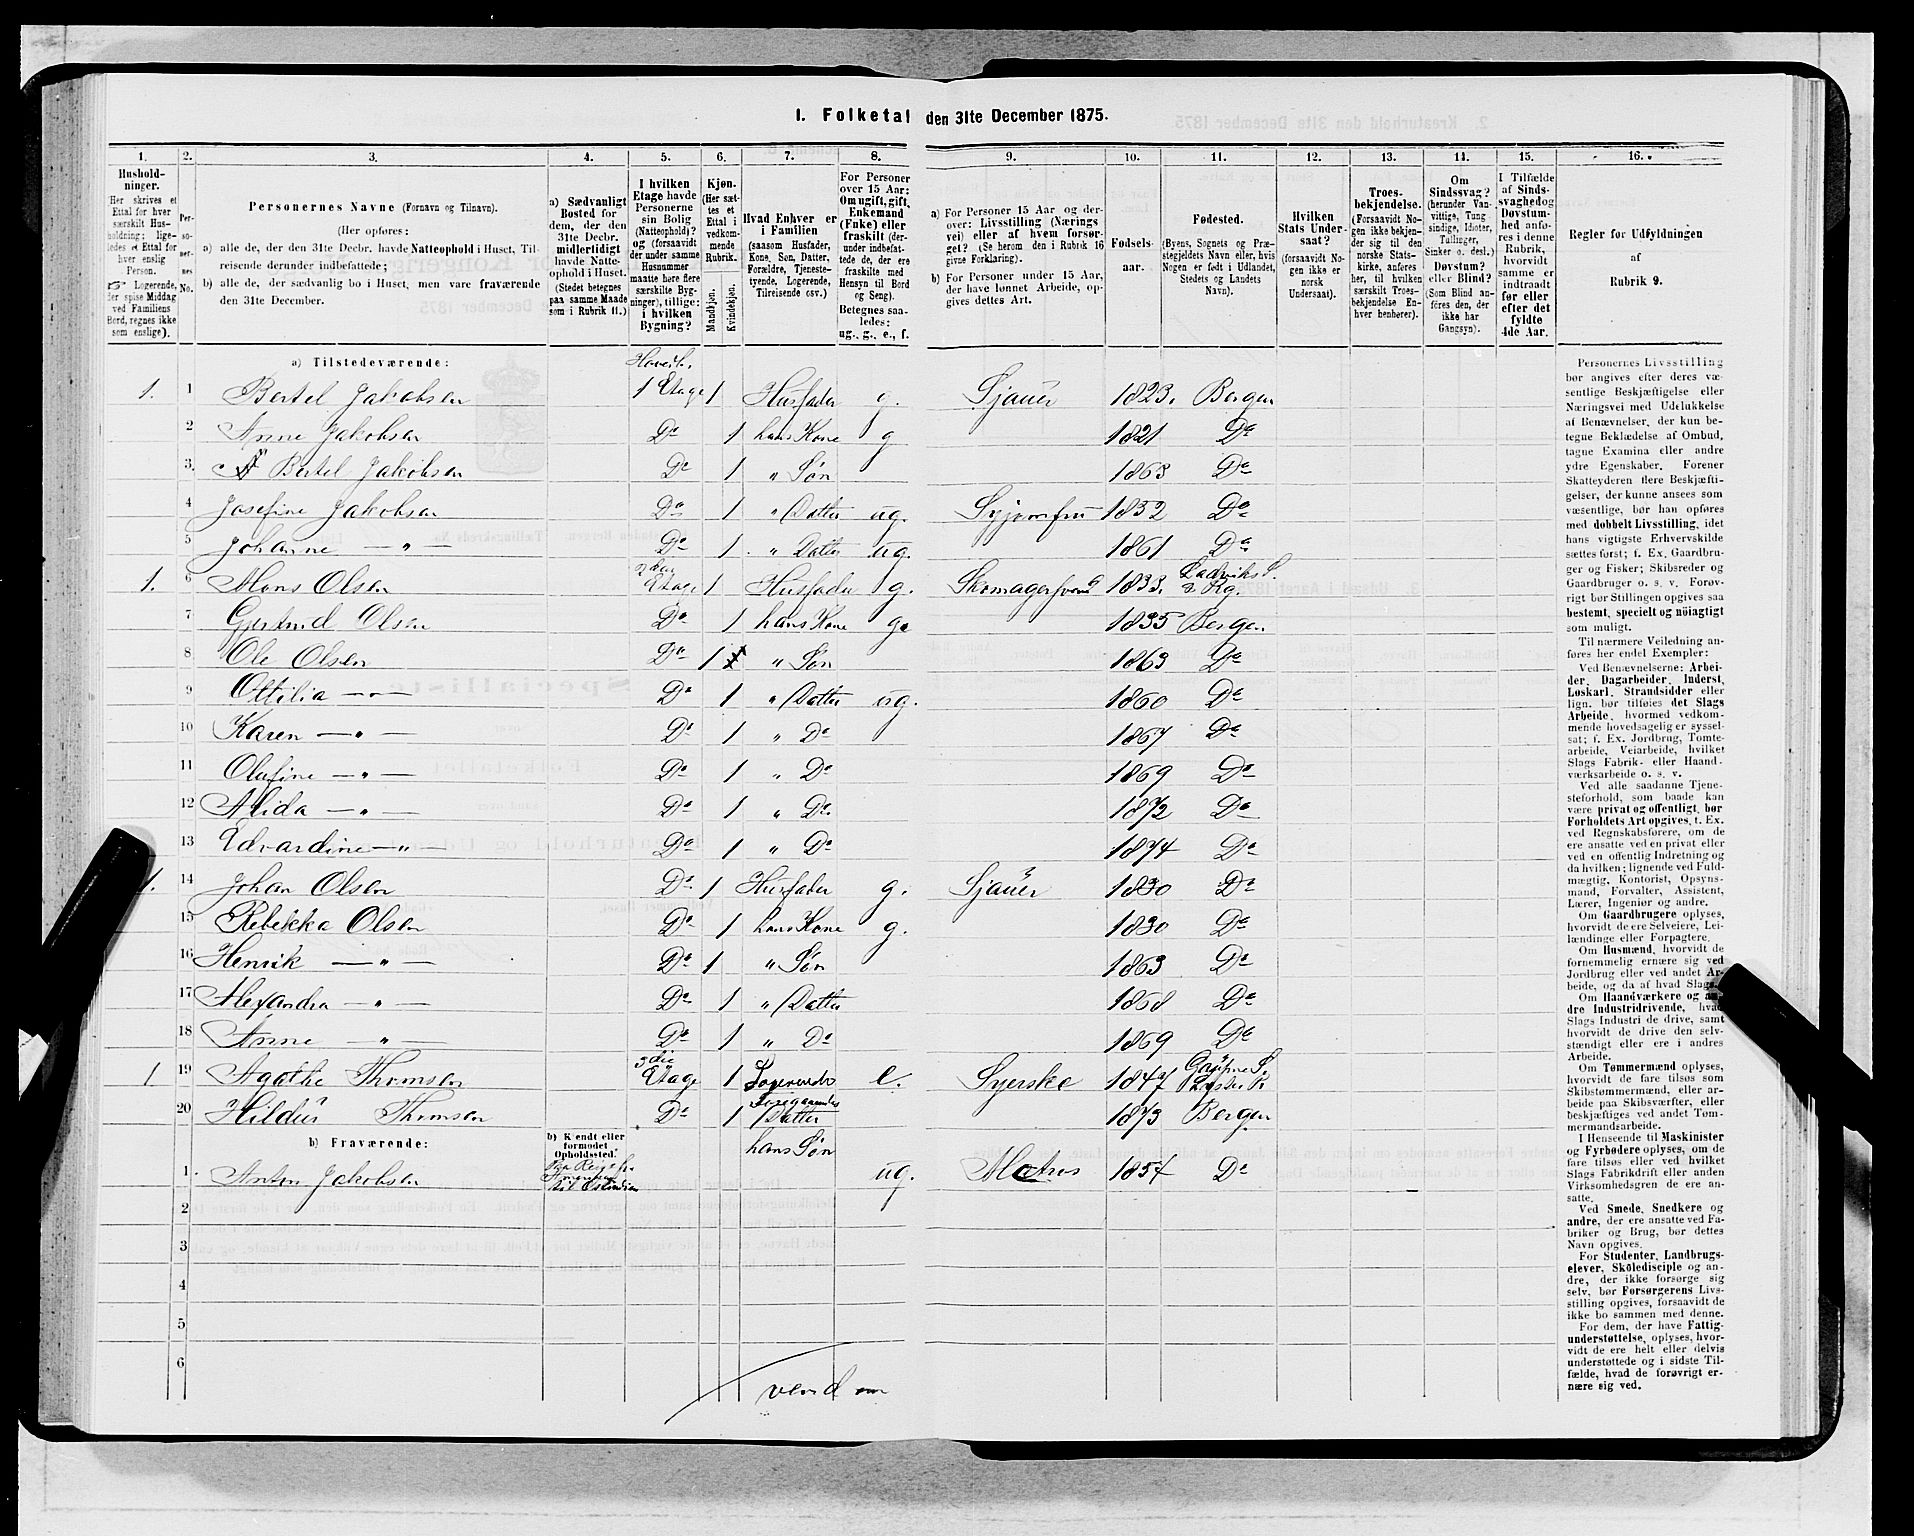 1. Folketal den 31te December 1875.
1. 2. 3. 4. 5. 6. 7. 8. 9. 10. 11. 12. 13. 14. 15. 16.
Hushold-
ninger.
Her skrives et
Ettal for hver
særskilt Hus-
holdning; lige-
ledes et Ettal for
hver enslig
Person.
☞ Logerende,
der spise Middag
ved Familiens
Bord, regnes ikke
som enslige).
Per-
so-
ner-
nes
No.
Personernes Navne (Fornavn og Tilnavn).
(Her opføres:
a) alle de, der den 31te Decbr. havde Natteophold i Huset, Til-
reisende derunder indbefattede;
b) alle de, der sædvanlig bo i Huset, men vare fraværende
den 31te December.
a) Sædvanligt
Bosted for
dem, der den
31te Decbr.
midlertidigt
havde Natte-
ophold i Huset.
(Stedet betegnes
paa samme Maade
som i Rubrik 11.)
I hvilken
Etage havde
Personerne
sin Bolig
(Natteophold)?
og (forsaavidt
der under samme
Husnummer
maatte høre flere
særskilte Byg-
ninger), tillige:
i hvilken
Bygning?
Kjøn.
(Her sæt-
tes et
Ettal i
vedkom-
mende
Rubrik.
Mandkjøn.
Kvindekjøn.
Hvad Enhver er
i Familien
(saasom Husfader,
Kone, Søn, Datter,
Forældre, Tjeneste-
tyende, Logerende,
Tilreisende osv.)
For Personer
over 15 Aar:
Om ugift, gift,
Enkemand
(Enke) eller
fraskilt (der-
under indbefat-
tede de, der ere
fraskilte med
Hensyn til Bord
og Seng).
Betegnes saa-
ledes:
ug., g., e., f.
a) For Personer 15 Aar og der-
over: Livsstilling (Nærings-
vei) eller af hvem forsør-
get? (Se herom den i Rubrik 16
givne Forklaring).
b) For Personer under 15 Aar,
der have lønnet Arbeide, op-
gives dettes Art.
Fødsels-
aar.
Fødested.
(Byens, Sognets og Præ-
stegjeldets Navn eller, hvis
Nogen er født i Udlandet,
Stedets og Landets
Navn).
Hvilken
Stats Under-
saat?
(forsaavidt No-
gen ikke er
norsk
Undersaat).
Troes-
bekjendelse.
(Forsaavidt No-
gen ikke bekjen-
der sig til den
norske Stats-
kirke, anføres
her, til hvilken
særskilt Troes-
bekjendelse En-
hver henhører).
Om
Sindssvag?
(herunder Van-
vittige, Tung-
sindige, Idioter,
Tullinger,
Sinker o. desl.)
Døvstum?
eller Blind?
(Som Blind an-
føres den, der
ikke har
Gangsyn).
I Tilfælde
af Sinds-
svaghed og
Døvstum-
hed anfø-
res i denne
Rubrik,
hvorvidt
samme er
indtraadt
før eller
efter det
fyldte
4de Aar.
Regler for Udfyldningen
af
Rubrik 9.
a) Tilstedeværende:
1. 1 Bertel Jakobsen 1 Etage 1 Husfader g. Sjauer 1823. Bergen
2 Anne Jakobsen Do 1 hans Kone g 1821 Do
3 Bertel Jakobsen Do 1 " Søn 1863 Do
4 Josefine Jakobsen Do 1 " Datter ug. Syjomfru 1852 Do
5 Johanne — " — Do 1 " Datter ug. 1861 Do
1. 6 Mons Olsen Etage 1 Husfader g. 1833.
7 Gjertrud Olsen Do 1 hans Kone g. 1835 Bergen
8 Ole Olsen Do 1 " Søn 1863 Do
9 Ottilia — " — Do 1 " Datter ug. 1860 Do
10 Karen — " — Do 1 " Do 1867 Do
11 Olufine — " — Do 1 " Do 1869 Do
12 Alida — " — Do 1 " Do 1872 Do
13 Edvardine — " — Do 1 " Do 1874 Do
1. 14 Johan Olsen Do 1 Husfader g. Sjauer 1830 Do
15 Rebekka Olsen Do 1 hans Kone g. 1830 Do
16 Henrik — " — Do 1 " Søn 1863 Do
17 Alexandra — " — Do 1 " Datter 1868 Do
18 Anne — " — Do 1 " Do 1869 Do
1 19 Agathe Thomsen 3die Etage 1 Logerende e. Syerske 1847
20 Hildur Thomsen Do 1 Datter 1873 Bergen
b) Fraværende:
b) Kjendt eller
formodet
Opholdssted.
1. Anton Jakobsen hans Søn ug. Matros 1857 Do
2
3
4
5
6
vend om
Personernes Livsstilling
bør angives efter deres væ-
sentlige Beskjæftigelse eller
Næringsvei med Udelukkelse
af Benævnelser, der kun be-
tegne Beklædelse af Ombud,
tagne Examina eller andre
ydre Egenskaber. Forener
Skatteyderen flere Beskjæfti-
gelser, der kunne ansees som
væsentlige, bør han opføres
med dobbelt Livsstilling, idet
hans vigtigste Erhvervskilde
sættes først; f. Ex. Gaardbru-
ger og Fisker; Skibsreder og
Gaardbruger o. s. v. Forøv-
rigt bør Stillingen opgives saa
bestemt, specielt og nöiagtigt
som muligt.
Til nærmere Veiledning an-
føres her endel Exempler:
Ved Benævnelserne: Arbei-
der, Dagarbeider, Inderst,
Løskarl, Strandsidder eller
lign. bør tilføies det Slags
Arbeide, hvormed vedkom-
mende hovedsagelig er syssel-
sat; f. Ex. Jordbrug, Tomte-
arbeide, Veiarbeide, hvilket
Slags Fabrik- eller Haand-
værksarbeide o. s. v.
Ved alle saadanne Tjene-
steforhold, som baade kan
være privat og offentligt, bør
Forholdets Art opgives, t. Ex.
ved Regnskabsførere, om de
ere ansatte ved en privat eller
ved en offentlig Indretning og
da hvilken; lignende ved Fuld-
mægtig, Kontorist, Opsyns-
mand, Forvalter, Assistent,
Lærer, Ingeniør og andre.
Om Gaardbrugere oplyses,
hvorvidt de ere Selveiere, Lei-
lændinge eller Forpagtere.
Om Husmænd, hvorvidt de
fornemmelig ernære sig ved
Jordbrug eller ved andet Ar-
beide, og da af hvad Slags.
Om Haandværkere og an-
dre Industridrivende, hvad
Slags Industri de drive, samt
hvorvidt de drive den selv-
stændigt eller ere i andres
Arbeide.
Om Tømmermænd oplyses,
hvorvidt de fare tilsøs som
Skibstømmermænd, eller ar-
beide paa Skibsværfter, eller
beskjæftiges ved andet Tøm-
mermandsarbeide.
I Henseende til Maskinister
og Fyrbødere oplyses, om de
fare tilsøs eller ved hvilket
Slags Fabrikdrift eller anden
Virksomhedsgren de ere an-
satte.
Ved Smede, Snedkere og
andre, der ere ansatte ved Fa-
briker og Brug, bør dettes
Navn opgives.
For Studenter, Landbrugs-
elever, Skoledisciple og an-
dre, der ikke forsørge sig
selv, bør Forsørgerens Livs-
stilling opgives, forsaavidt de
ikke bo sammen med denne.
For dem, der have Fattig-
understøttelse, oplyses, hvor-
vidt de ere helt eller delvis
understøttede og i sidste Til-
fælde, hvad de forøvrigt er-
nære sig ved.